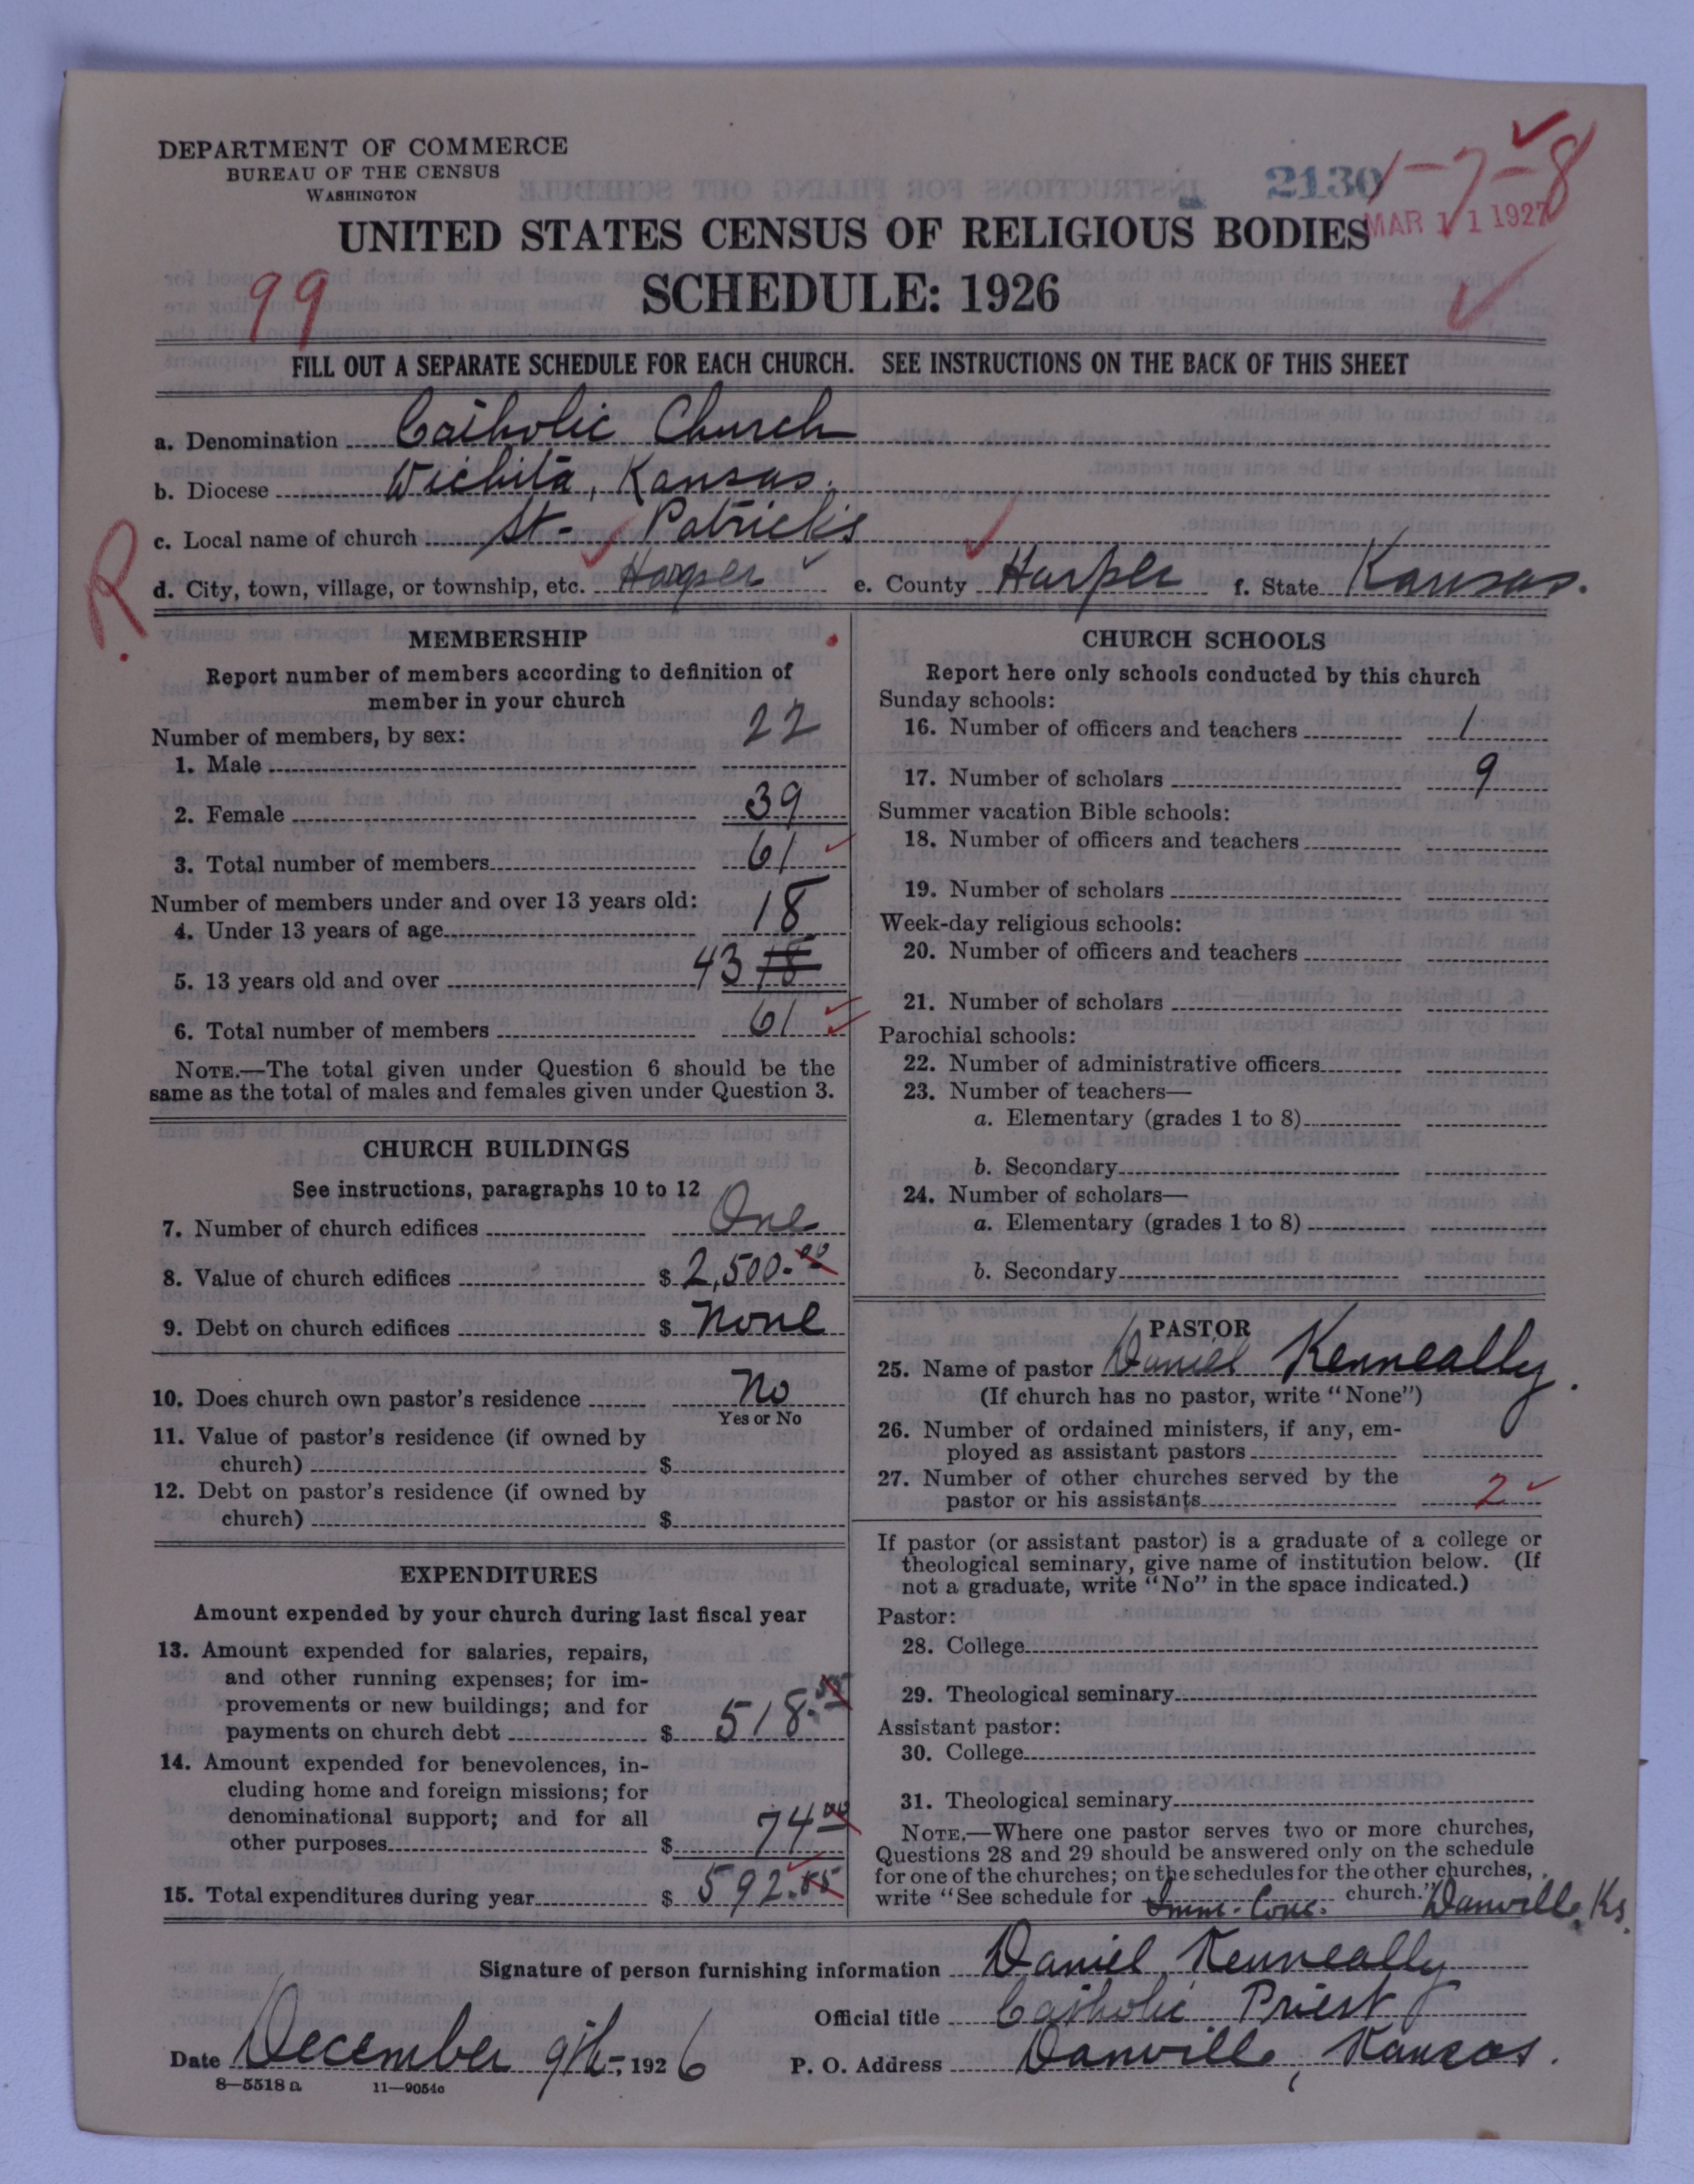 DEPARTMENT OF COMMERCE
BUREAU OF THE CENSUS
WASHINGTON
2130
1-7-8
MAR 11 1927
UNITED STATES CENSUS OF RELIGIOUS BODIES
SCHEDULE: 1926
99
FILL OUT A SEPARATE SCHEDULE FOR EACH CHURCH. SEE INSTRUCTIONS ON THE BACK OF THIS SHEET
a. Denomination Catholic Church
b. Diocese Wichita, Kansas.
c. Local name of church St- Patrick's
R.
d. City, town, village, or township, etc. Harper e. County Harper f. State Kansas.
MEMBERSHIP
Report number of members according to definition of
member in your church
Number of members, by sex:
1. Male 22
2. Female 39
3. Total number of members 61
Number of members under and over 13 years old:
4. Under 13 years of age 18
5. 13 years old and over 43 18
6. Total number of members 61
NOTE.—The total given under Question 6 should be the
same as the total of males and females given under Question 3.
CHURCH BUILDINGS
See instructions, paragraphs 10 to 12
7. Number of church edifices One
8. Value of church edifices $ 2,500.00
9. Debt on church edifices $ None
10. Does church own pastor's residence No
Yes or No
11. Value of pastor's residence (if owned by
church) $
12. Debt on pastor's residence (if owned by
church) $
EXPENDITURES
Amount expended by your church during last fiscal year
13. Amount expended for salaries, repairs,
and other running expenses; for im-
provements or new buildings; and for
payments on church debt $ 518.
14. Amount expended for benevolences, in-
cluding home and foreign missions; for
denominational support; and for all
other purposes $ 74 00
15. Total expenditures during year $ 592.
CHURCH SCHOOLS
Report here only schools conducted by this church
Sunday schools:
16. Number of officers and teachers 1
17. Number of scholars 9
Summer vacation Bible schools:
18. Number of officers and teachers
19. Number of scholars
Week-day religious schools:
20. Number of officers and teachers
21. Number of scholars
Parochial schools:
22. Number of administrative officers
23. Number of teachers—
a. Elementary (grades 1 to 8)
b. Secondary
24. Number of scholars—
a. Elementary (grades 1 to 8)
b. Secondary
PASTOR
25. Name of pastor Daniel Kenneally.
(If church has no pastor, write "None")
26. Number of ordained ministers, if any, em-
ployed as assistant pastors
27. Number of other churches served by the
pastor or his assistants 2
If pastor (or assistant pastor) is a graduate of a college or
theological seminary, give name of institution below. (If
not a graduate, write "No" in the space indicated.)
Pastor:
28. College
29. Theological seminary
Assistant pastor:
30. College
31. Theological seminary
NOTE.—Where one pastor serves two or more churches,
Questions 28 and 29 should be answered only on the schedule
for one of the churches; on the schedules for the other churches,
write "See schedule for Imm. Conc. church." Danville, Ks.
Signature of person furnishing information Daniel Kenneally
Official title Catholic Priest
Date December 9th-, 1926 P. O. Address Danville, Kansas.
8—5518 a 11—9054c